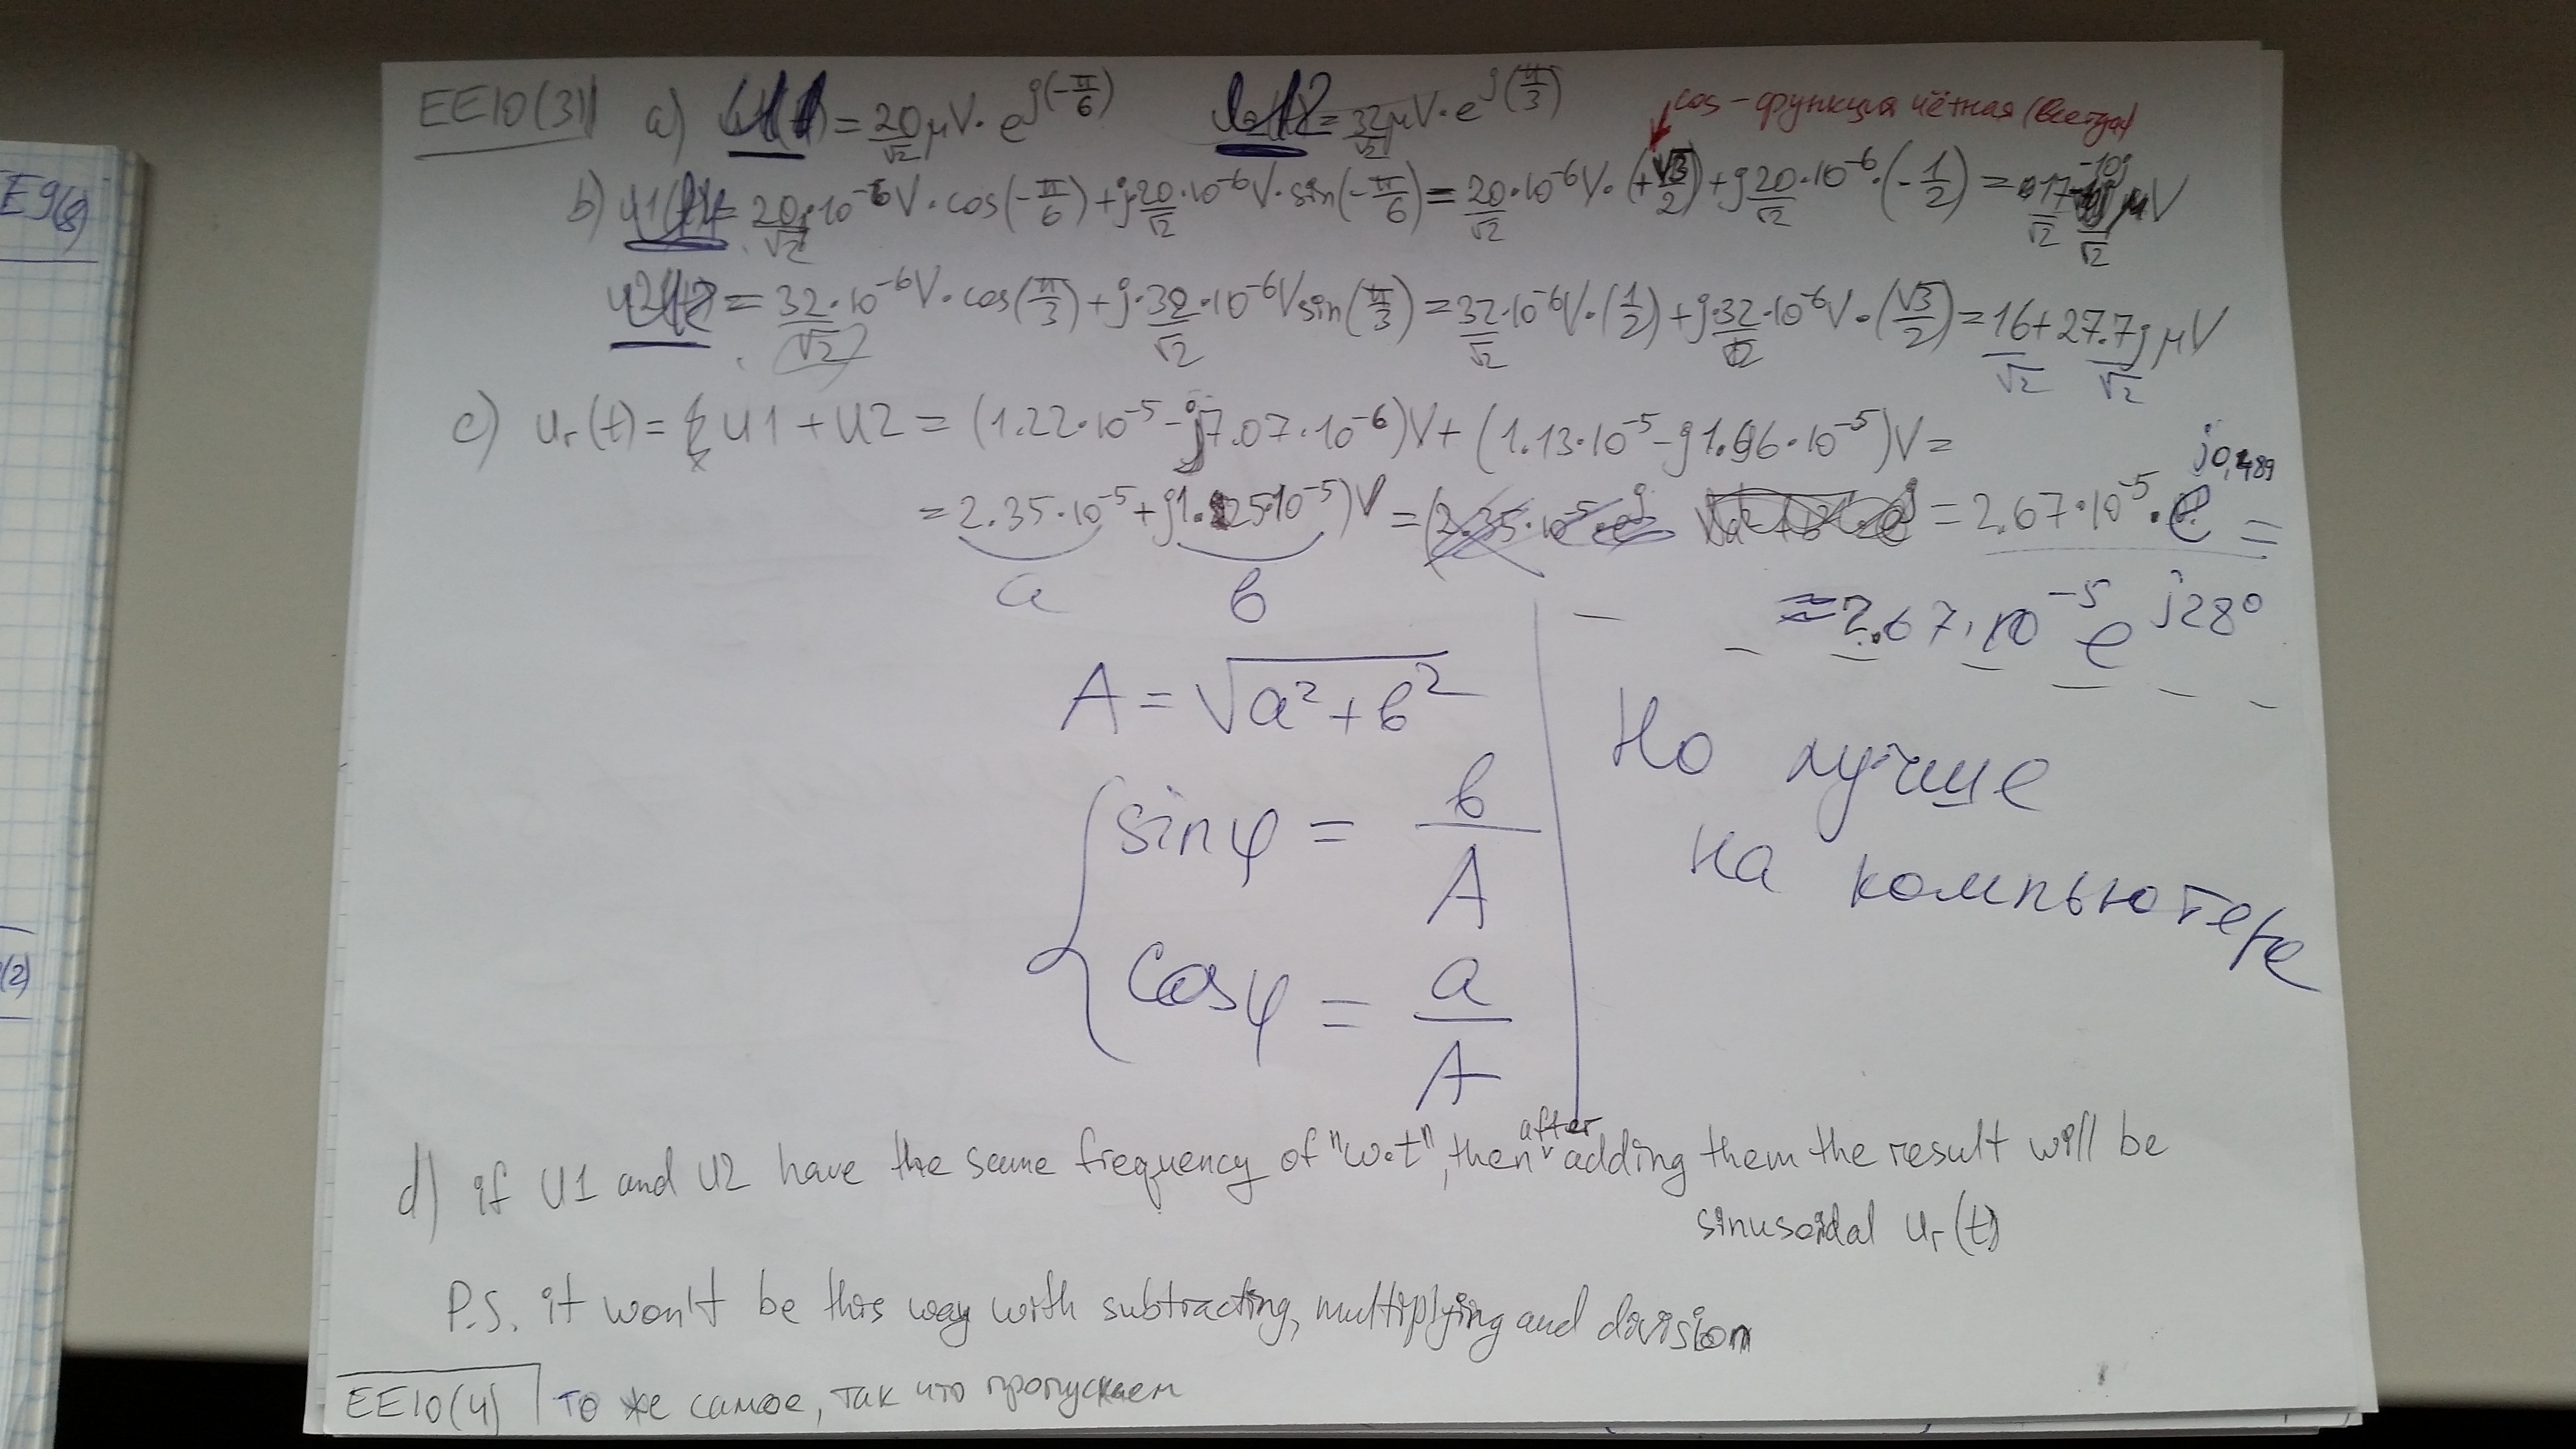 E9(8)
(2)
EE10(3)
a) = 20/√2 μV · e^j(-π/6) = 32/√2 μV · e^j(π/3)
cos - функция чётная (всегда)
b) u1 = 20/√2 · 10^-6 V · cos(-π/6) + j 20/√2 · 10^-6 V · sin(-π/6) = 20/√2 · 10^-6 V · (+√3/2) + j 20/√2 · 10^-6 · (-1/2) = 17/√2 -10j/√2 μV
u2 = 32/√2 · 10^-6 V · cos(π/3) + j · 32/√2 · 10^-6 V sin(π/3) = 32/√2 · 10^-6 V · (1/2) + j · 32/√2 · 10^-6 V · (√3/2) = 16/√2 + 27.7j/√2 μV
c) ur(t) = u1 + u2 = (1.22 · 10^-5 - j7.07 · 10^-6)V + (1.13 · 10^-5 - j1.96 · 10^-5)V =
= 2.35 · 10^-5 + j1.25 · 10^-5)V = = 2.67 · 10^-5 · e^j0,489 =
a b
≈ 2.67 · 10^-5 e^j28°
A = √a² + b²
sinφ = b/A
cosφ = a/A
Но лучше
на компьютере
d) if U1 and U2 have the same frequency of "w·t", then after adding them the result will be
sinusoidal ur(t)
P.S. it won't be this way with subtracting, multiplying and division
EE10(4) то же самое, так что пропускаем